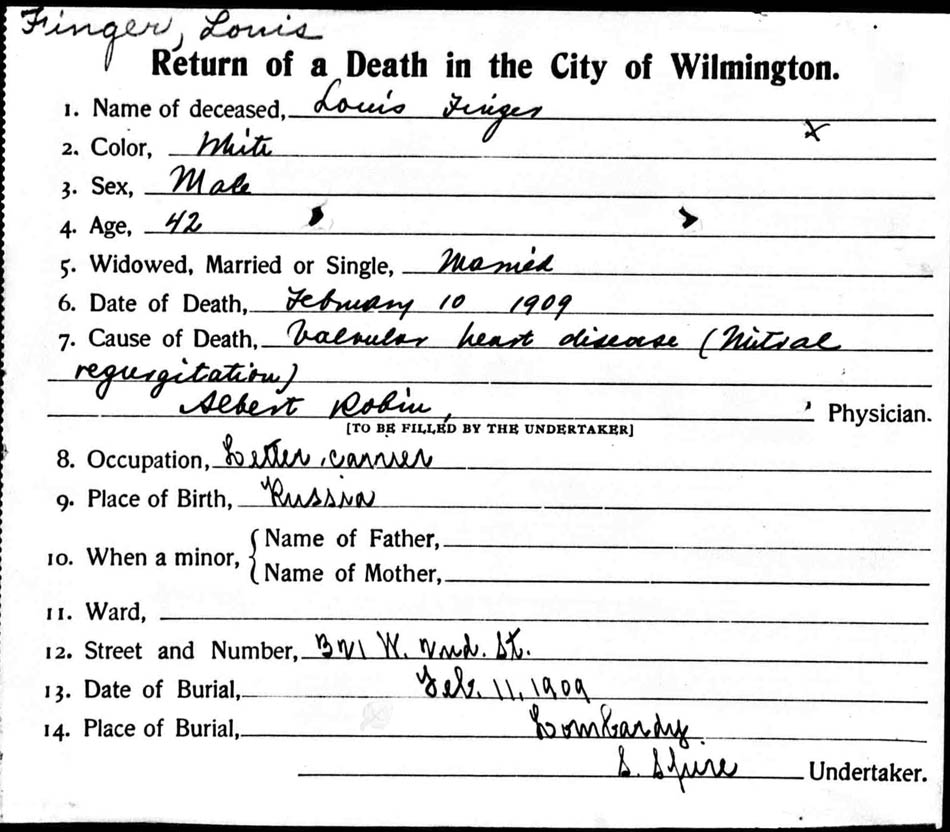 Finger, Louis
Return of a Death in the City of Wilmington.
1. Name of deceased, Louis Finger
x
2. Color, White
3. Sex, Male
4. Age, 42
5. Widowed, Married or Single, Married
6. Date of Death, February 10 1909
7. Cause of Death, Valvular heart disease (Mitral
regurgitation)
Albert Robin, Physician.
[TO BE FILLED BY THE UNDERTAKER]
8. Occupation, Letter carrier
9. Place of Birth, Russia
10. When a minor, { Name of Father,
Name of Mother,
11. Ward,
12. Street and Number, 321 W. 2nd. St.
13. Date of Burial, Feb. 11, 1909
14. Place of Burial, Lombardy
S. Undertaker.